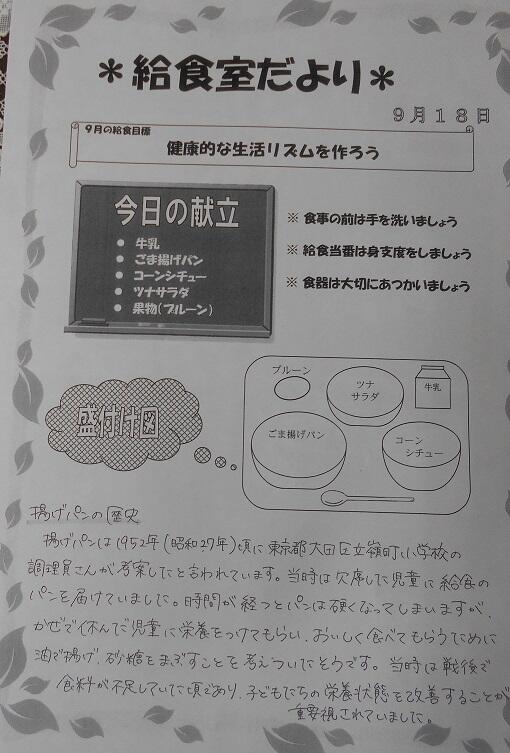 ＊給食室だより＊
９月１８日
９月の給食目標
健康的な生活リズムを作ろう
今日の献立
● 牛乳
● ごま揚げパン
● コーンシチュー
● ツナサラダ
● 果物(プルーン)
※ 食事の前は手を洗いましょう
※ 給食当番は身支度をしましょう
※ 食器は大切にあつかいましょう
盛付け図
プルーン
ツナ
サラダ
牛乳
ごま揚げパン
コーン
シチュー
揚げパンの歴史
揚げパンは1952年(昭和27年)頃に東京都大田区立嶺町小学校の
調理員さんが考案したと言われています。当時は欠席した児童に給食の
パンを届けていました。時間が経つとパンは硬くなってしまいますが、
かぜで休んだ児童に栄養をつけてもらい、おいしく食べてもらうために
油で揚げ、砂糖をまぶすことを考えついたそうです。当時は戦後で
食料が不足していた頃であり、子どもたちの栄養状態を改善することが
重要視されていました。